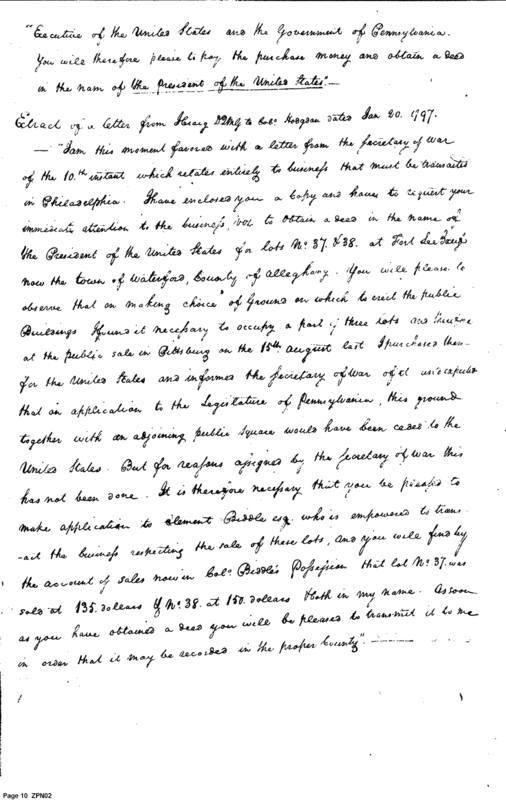 "Executive of the United States and the Government of Pennsylvania.
You will therefore please to pay the purchase money and obtain a deed
in the nam of the President of the United States." —
Extract of a letter from I Craig DQMG to Colo. Hodgdon dated Jan 20. 1797.
— "I am this moment favored with a letter from the Secretary of War
of the 10.th instant which relates entirely to business that must be transacted
in Philadelphia. I have enclosed you a Copy and have to request your
immediate attention to the business, viz to obtain a deed in the name of
the President of the United States for lots No. 37. & 38. at Fort Le Beuf
now the town of Waterford, County of Alleghany. You will please to
observe that on making choice of Ground on which to erect the public
Buildings I found it necessary to occupy a part of three Lots and therefore
at the public sale in Pittsburg on the 15th august last I purchased them
for the United States and informed the Secretary of War of it
that on application to the Legislature of Pennsylvania, this ground
together with an adjoining public square would have been ceded to the
United States. But for reasons assigned by the Secretary of War this
has not been done. It is therefore necessary that you be pleased to
make application to Clement Biddle esq. who is empowered to trans
-act the business respecting the sale of these lots, and you will find by
the account of sales now in Colo. Biddle's Possession that lot No. 37. was
sold at 135. dollars & No. 38. at 150. dollars both in my name. As soon
as you have obtained a deed you will be pleased to transmit it to me
in order that it may be recorded in the proper County". —
Page 10 ZPN02